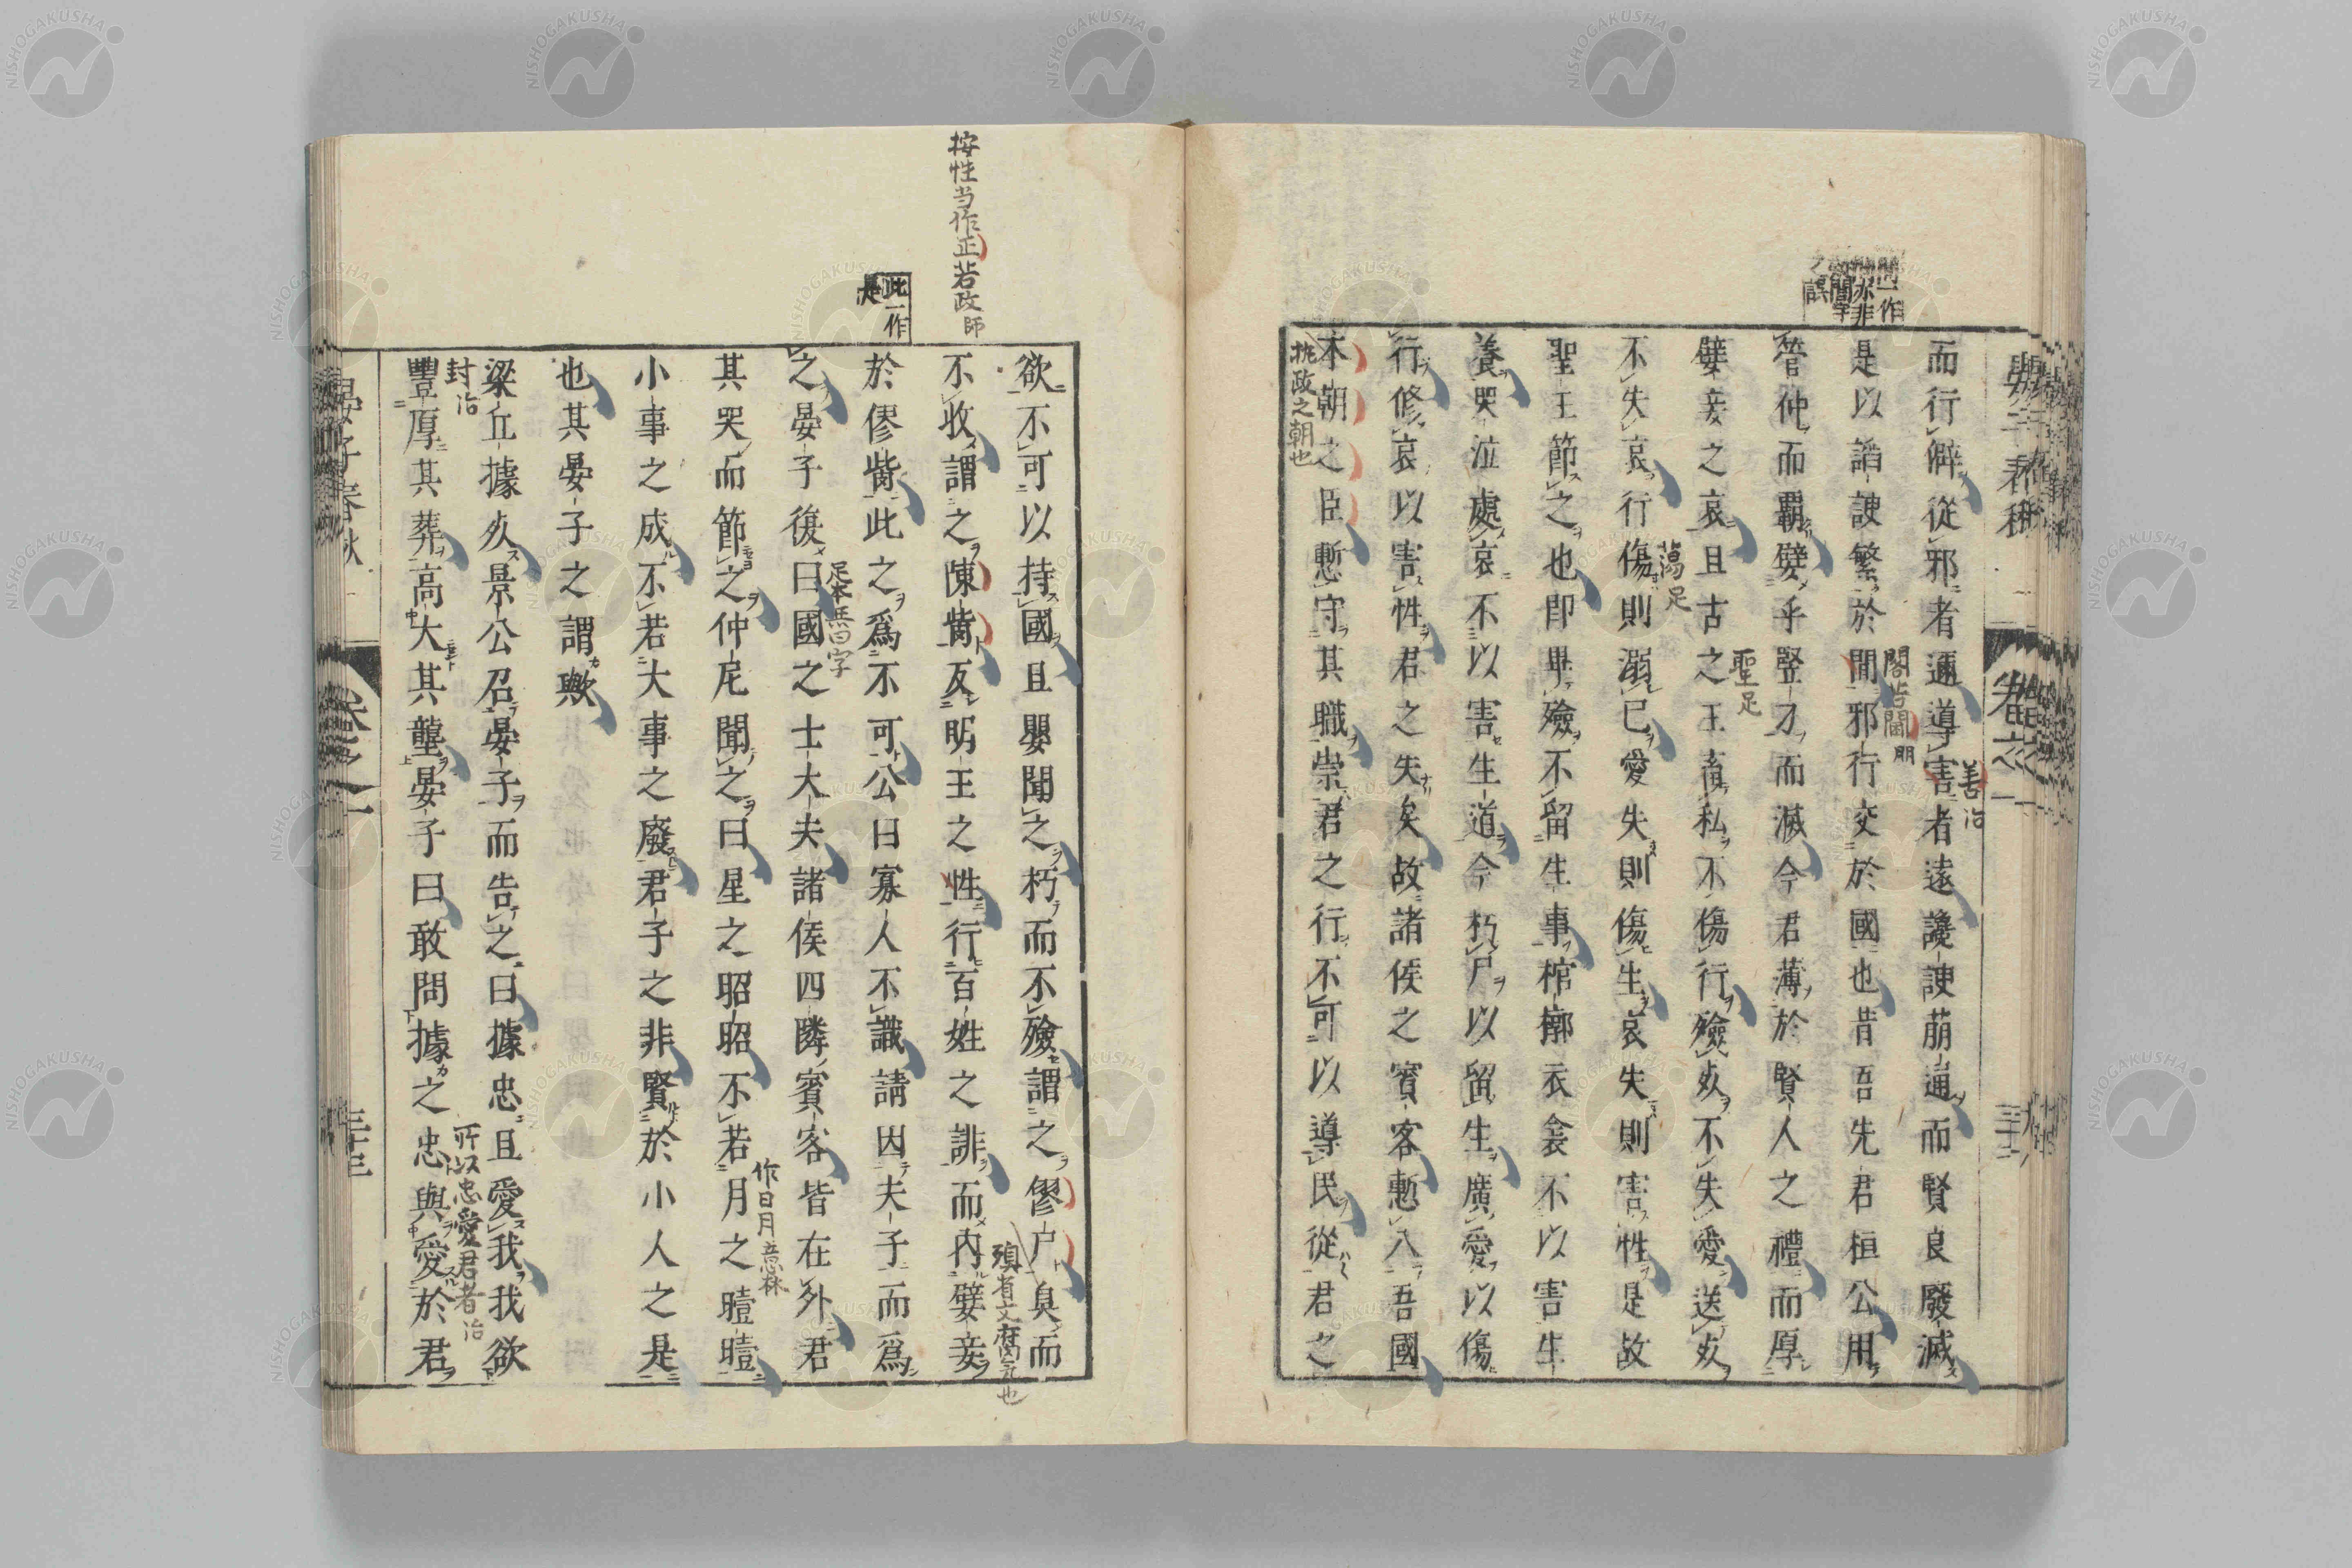 而行僻從邪者邇導害者遠讒諛萠通而賢良廢滅
是以諂諛繁於閒邪行交於國也昔吾先君桓公用
管仲而霸嬖乎竪刁而滅今君薄於賢人之禮而厚
嬖妾之哀且古之王畜私不傷行殮死不失愛送死
不失哀行傷則溺己愛失則傷生哀失則害性是故
聖王節之也卽畢殮不留生事棺槨衣衾不以害生
養哭泣處哀不以害生道今朽尸以留生廣愛以傷
行修哀以害性君之失矣故諸侯之賓客慙入吾國
本朝之臣慙守其職崇君之行不可以導民從君之
善治
閤皆閫朋
聖足
蕩足
挑政之朝也
欲不可以持國且嬰聞之朽而不殮謂之僇尸臭而
不收謂之陳胔反明王之性行百姓之誹而內嬖妾
於僇胔此之爲不可公曰寡人不識請因夫子而爲
之晏子復曰國之士大夫諸侯四隣賓客皆在外君
其哭而節之仲尼聞之曰星之昭昭不若月之曀曀
小事之成不若大事之廢君子之非賢於小人之是
也其晏子之謂歟
梁丘據死景公召晏子而告之曰據忠且愛我我欲
豐厚其葬高大其壟晏子曰敢問據之忠與愛於君
按性当作正若政師
此一作是
足本無曰字
作日月意林
封治
所以忠愛君者治
晏子春秋
卷之一
三十三